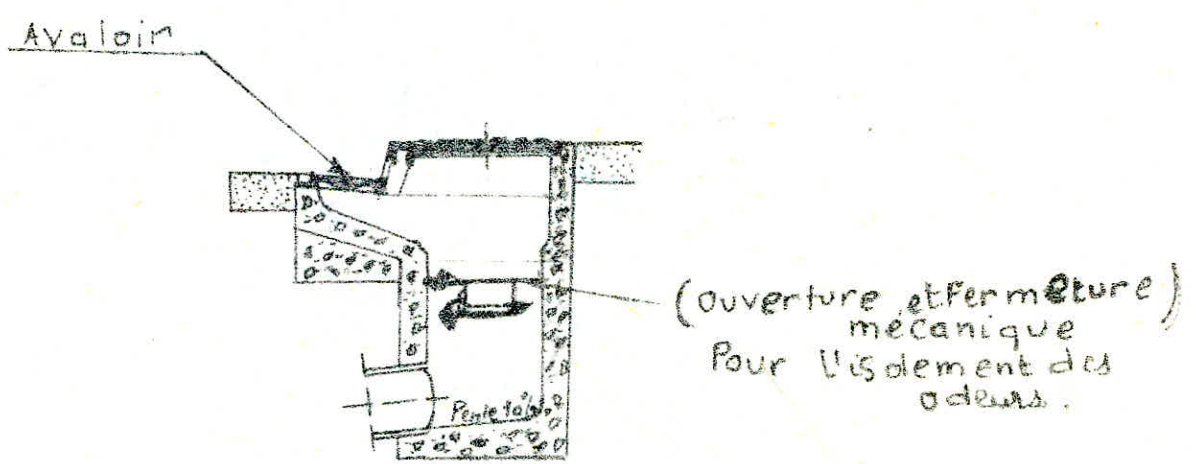 Avaloir
(ouverture et fermeture)
mécanique
Pour l'isolement des
odeurs.
Pente